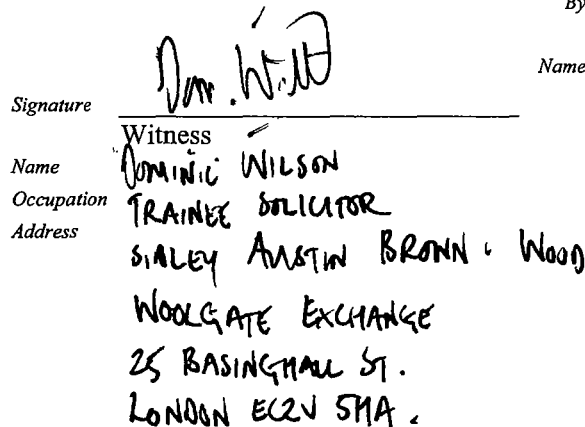 By
Name
Signature
Witness
Name DOMINIC WILSON
Occupation TRAINEE SOLICITOR
Address
SIDLEY AUSTIN BROWN & WOOD
WOOLGATE EXCHANGE
25 BASINGHALL ST.
LONDON EC2V 5HA.